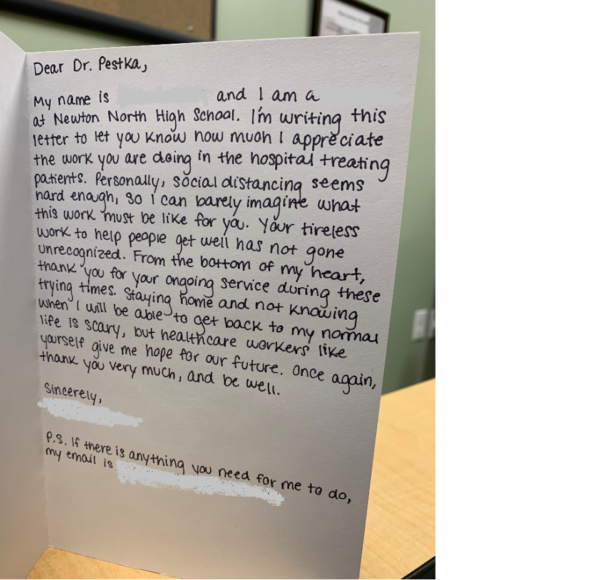 Dear Dr. Pestka,
My name is and I am a
at Newton North High School. I'm writing this
letter to let you know how much I appreciate
the work you are doing in the hospital treating
patients. Personally, social distancing seems
hard enough, so I can barely imagine what
this work must be like for you. Your tireless
work to help people get well has not gone
unrecognized. From the bottom of my heart,
thank you for your ongoing service during these
trying times. Staying home and not knowing
when I will be able to get back to my normal
life is scary, but healthcare workers like
yourself give me hope for our future. Once again,
thank you very much, and be well.
Sincerely,
P.S. If there is anything you need for me to do,
my email is